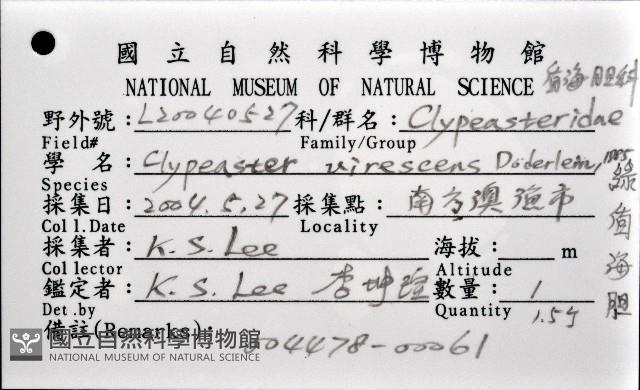 國立自然科學博物館
NATIONAL MUSEUM OF NATURAL SCIENCE 盾海胆科
野外號:L20040527 科/群名:Clypeasteridae
Field# Family/Group
學 名:Clypeaster virescens Döderlein, 1885
Species 綠盾海胆
採集日:2004.5.27 採集點:南方澳漁市
Coll.Date Locality
採集者:K.S.Lee 海拔: m
Collector Altitude
鑑定者:K.S.Lee 李坤瑄 數量:1
Det.by Quantity 1.5
備註(Remarks): 004478-00061
國立自然科學博物館
NATIONAL MUSEUM OF NATURAL SCIENCE